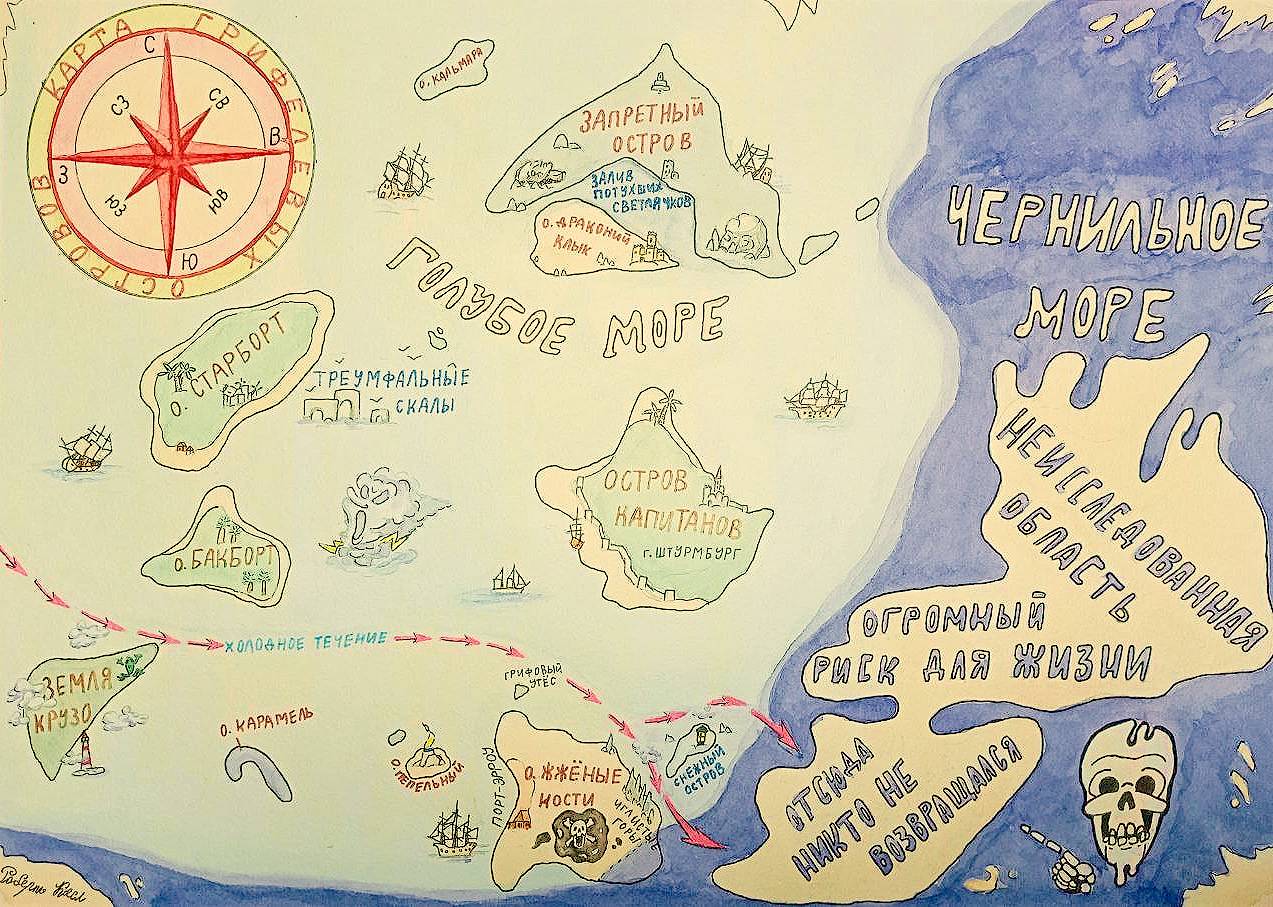 КАРТА ГРИФЕЛЕВЫХ ОСТРОВОВ
С
СЗ
СВ
З
В
ЮЗ
ЮВ
Ю
о. КАЛЬМАРА
ЗАПРЕТНЫЙ
ОСТРОВ
ЗАЛИВ
ПОТУХШИХ
СВЕТЛЯЧКОВ
о. ДРАКОНИЙ
КЛЫК
ЧЕРНИЛЬНОЕ
МОРЕ
ГОЛУБОЕ МОРЕ
о. СТАРБОРТ
ТРЕУМФАЛЬНЫЕ
СКАЛЫ
ОСТРОВ
КАПИТАНОВ
г. ШТУРМБУРГ
НЕИССЛЕДОВАННАЯ
ОБЛАСТЬ
о. БАКБОРТ
ОГРОМНЫЙ
РИСК ДЛЯ ЖИЗНИ
ХОЛОДНОЕ ТЕЧЕНИЕ
ГРИФОВЫЙ
УТЁС
ЗЕМЛЯ
КРУЗО
о. КАРАМЕЛЬ
о. ПЕПЕЛЬНЫЙ
о. ЖЖЁНЫЕ
КОСТИ
УГЛИСТЫЕ
ГОРЫ
СНЕЖНЫЙ
ОСТРОВ
ОТСЮДА
НИКТО НЕ
ВОЗВРАЩАЛСЯ